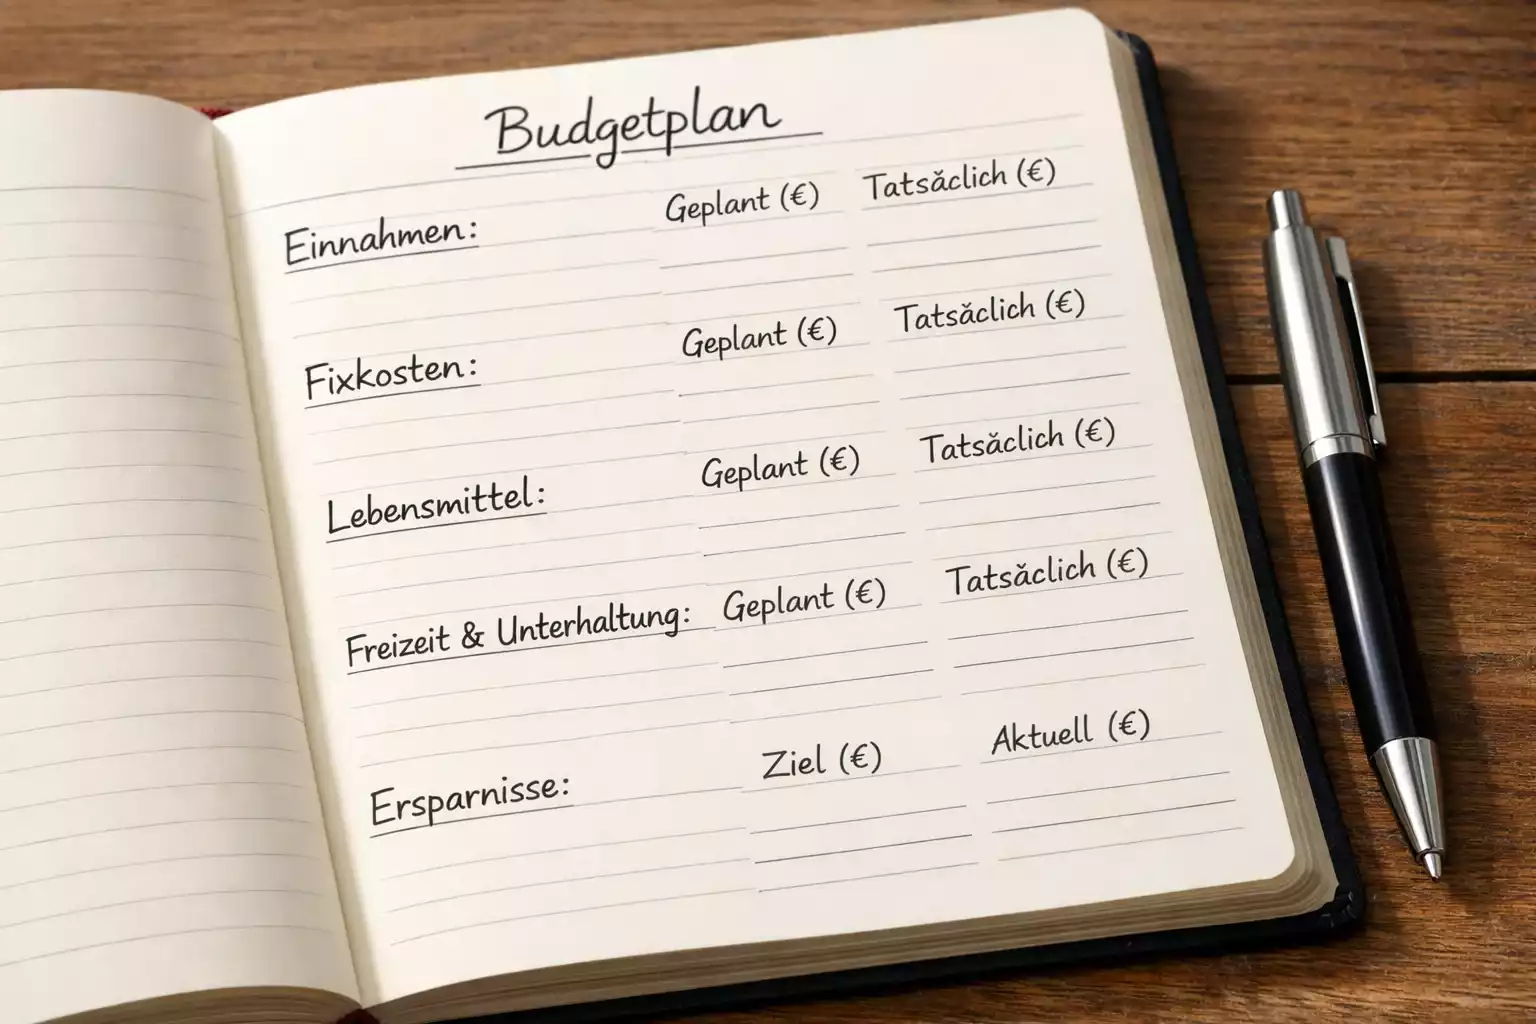 Budgetplan
Einnahmen: Geplant (€) Tatsǎclich (€)
Fixkosten: Geplant (€) Tatsǎclich (€)
Lebensmittel: Geplant (€) Tatsǎclich (€)
Freizeit & Unterhaltung: Geplant (€) Tatsǎclich (€)
Ersparnisse: Ziel (€) Aktuell (€)